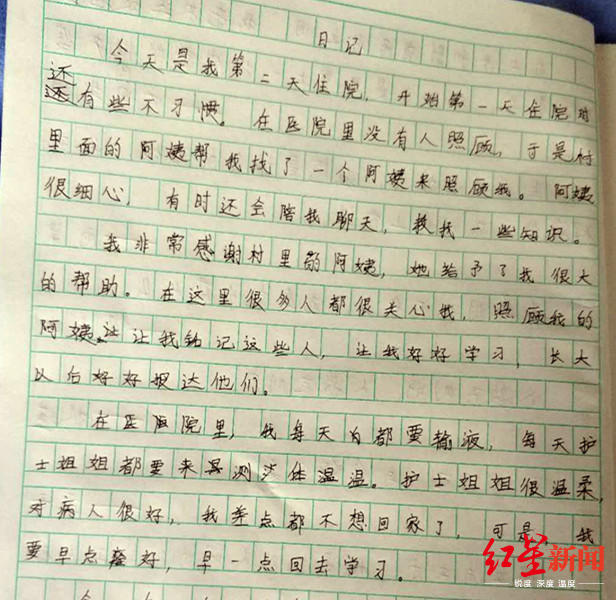 日记
今天是我第二天住院，开始第一天住院时
还有些不习惯。在医院里没有人照顾，于是村
里面的阿姨帮我找了一个阿姨来照顾我。阿姨
很细心，有时还会陪我聊天，教我一些知识。
我非常感谢村里的阿姨，她给予了我很大
的帮助。在这里很多人都很关心我，照顾我的
阿姨让让我铭记这些人，让我好好学习，长大
以后好好报达他们。
在医院里，我每天都要输液，每天护
士姐姐都要来测体温温。护士姐姐很温柔，
对病人很好，我差点都不想回家了，可是我
要早点好，早一点回去学习。
红星新闻
锐度 深度 温度